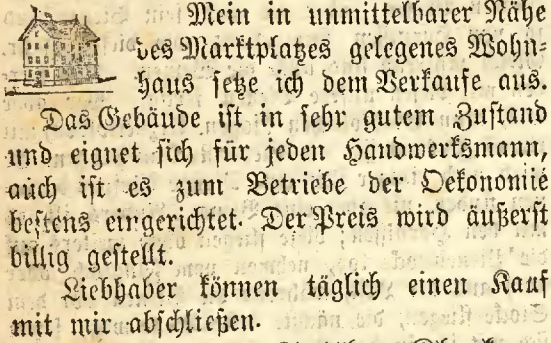 Mein in unmittelbarer Nähe
des Marktplatzes gelegenes Wohn=
haus setze ich dem Verkaufe aus.
Das Gebäude ist in sehr gutem Zustand
und eignet sich für jeden Handwerksmann,
auch ist es zum Betriebe der Oekonomie
bestens eingerichtet. Der Preis wird äußerst
billig gestellt.
Liebhaber können täglich einen Kauf
mit mir abschließen.